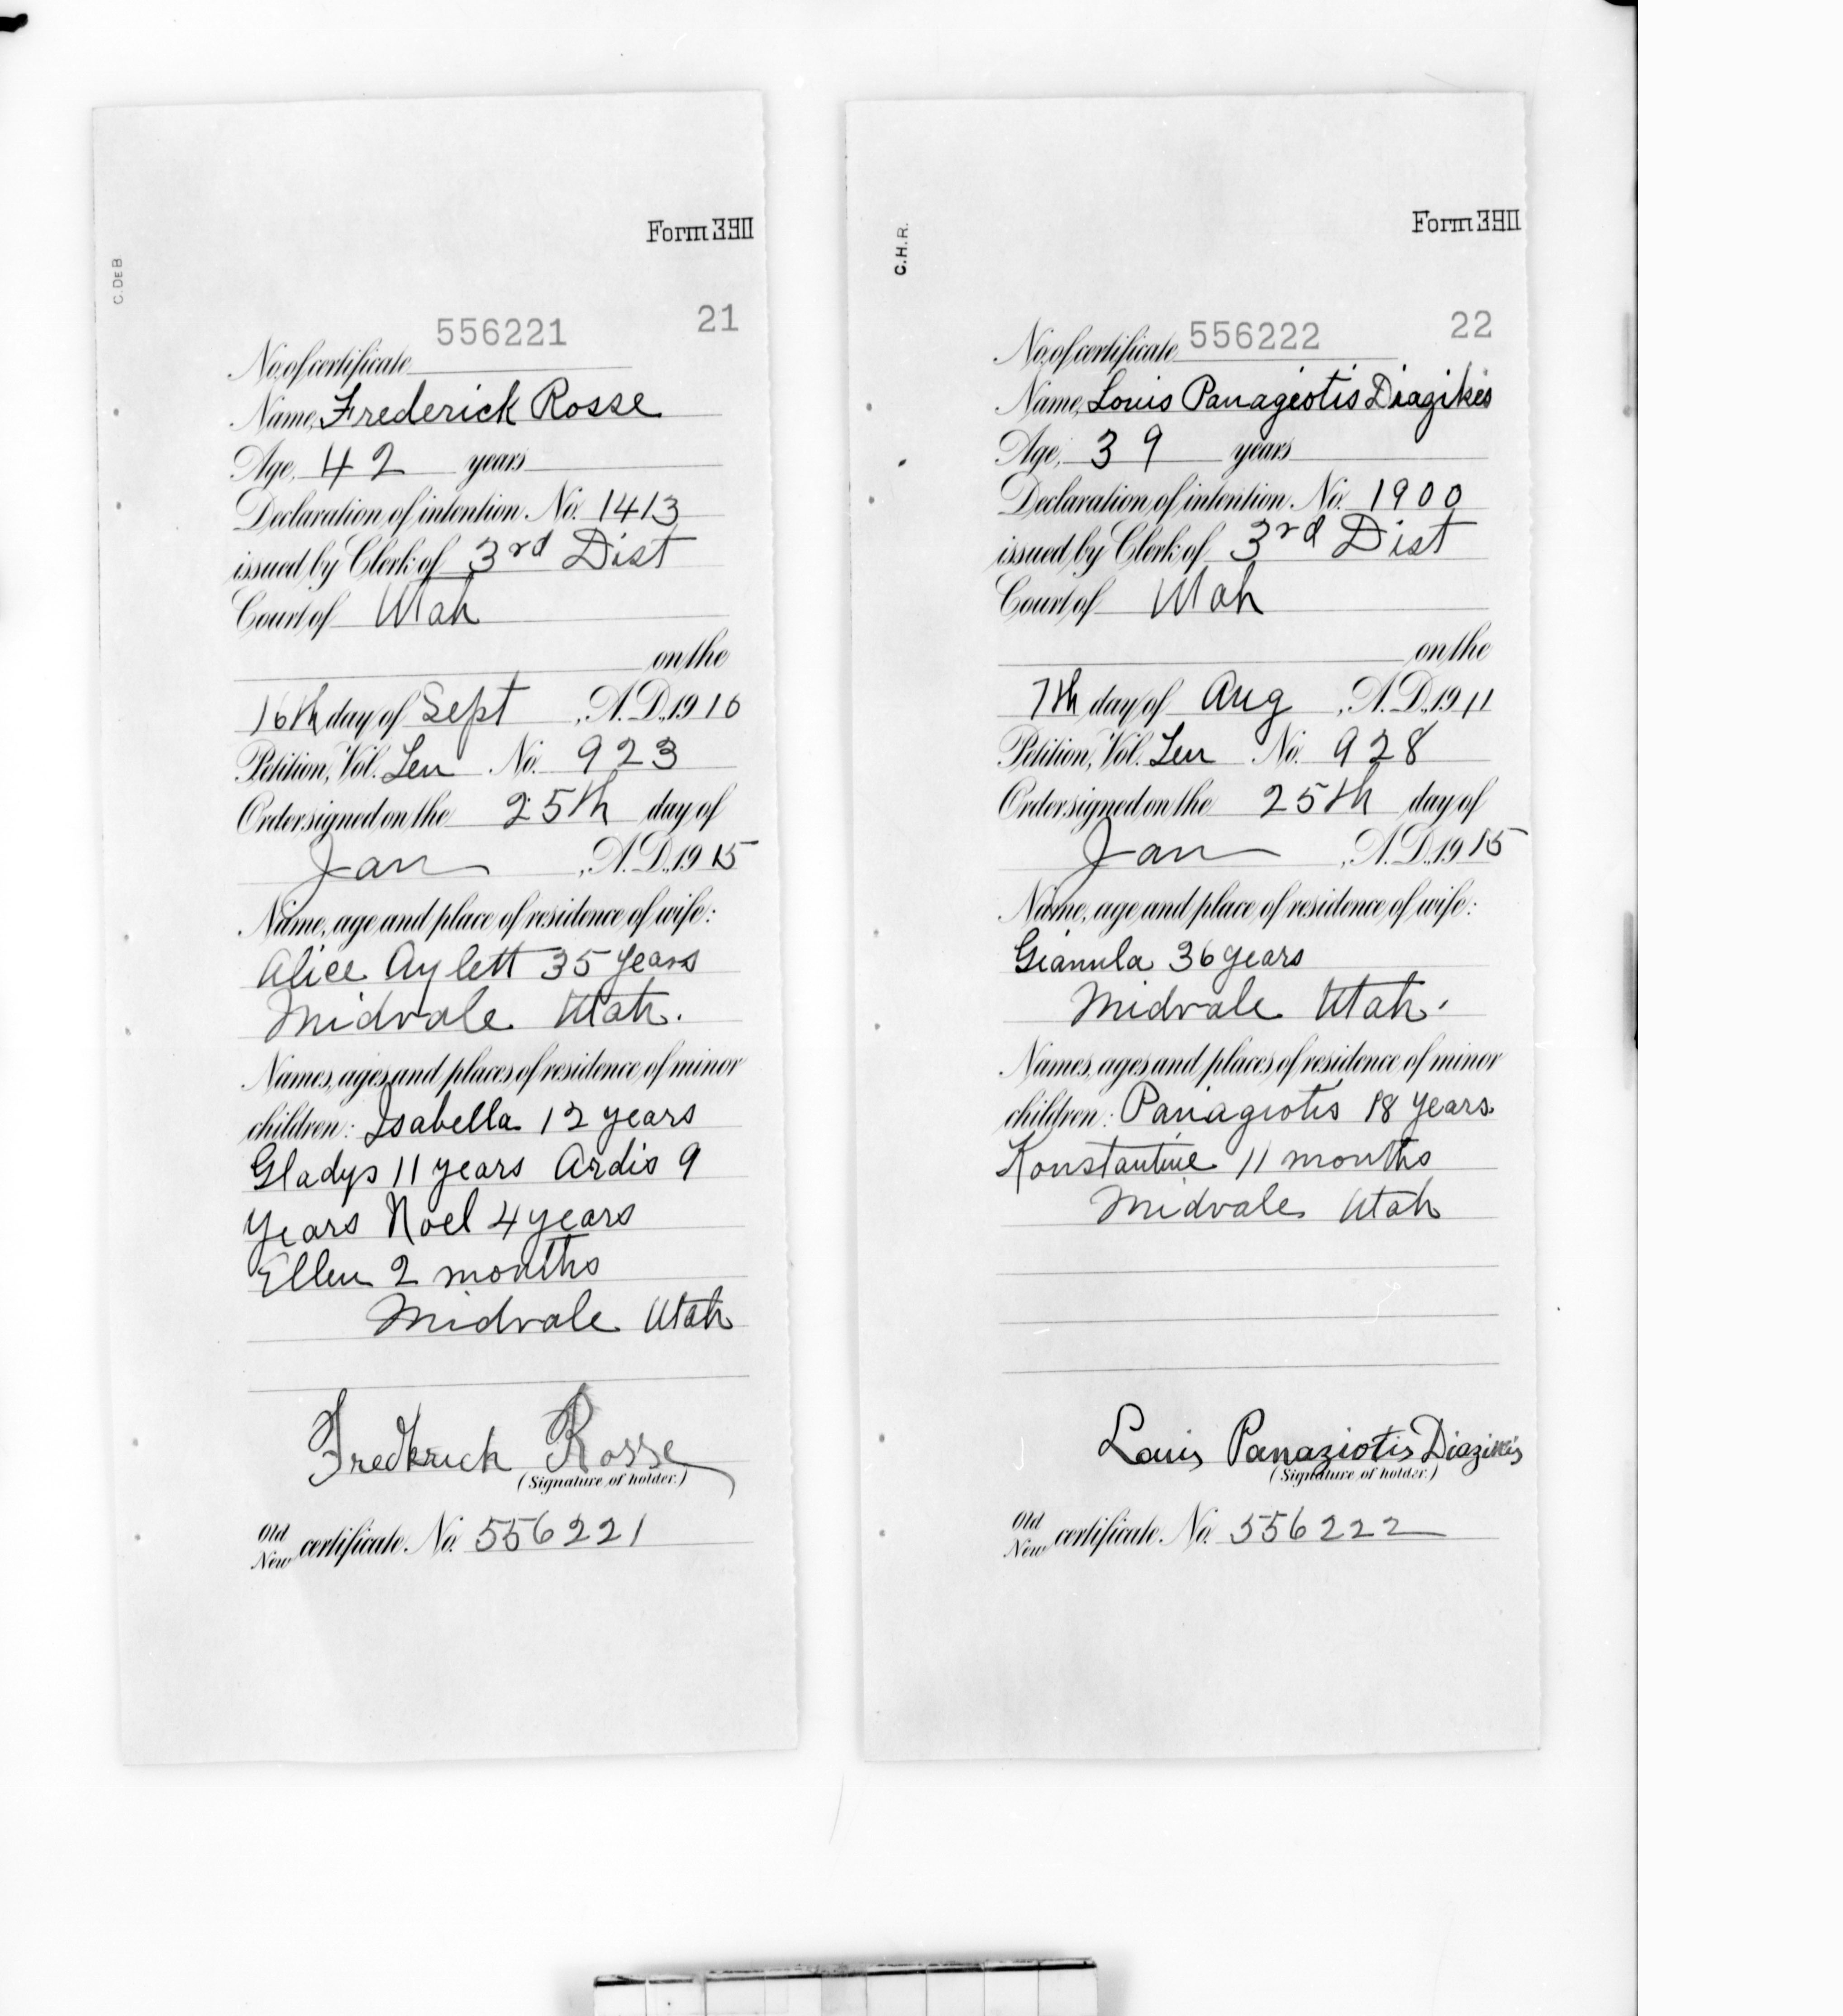 C. DE B
Form 390
556221 21
No. of certificate
Name, Frederick Rosse
Age, 42 years
Declaration of intention. No. 1413
issued by Clerk of 3rd Dist
Court of Utah
on the
16th day of Sept, A.D., 1910
Petition, Vol. Ten No. 923
Order signed on the 25th day of
Jan, A.D., 1915
Name, age and place of residence of wife:
Alice Aylett 35 years
Midvale Utah.
Names, ages and places of residence of minor
children: Isabella 12 years
Gladys 11 years Ardis 9
years Noel 4 years
Ellen 2 months
Midvale Utah
Frederick Rosse
(Signature of holder.)
Old
New certificate. No. 556221
C.H.R.
Form 390
22
No. of certificate 556222
Name, Louis Panageotis Diagikes
Age, 39 years
Declaration of intention. No. 1900
issued by Clerk of 3rd Dist
Court of Utah
on the
7th day of Aug, A.D., 1911
Petition, Vol. Ten No. 928
Order signed on the 25th day of
Jan, A.D., 1915
Name, age and place of residence of wife:
Gianula 36 years
Midvale Utah.
Names, ages and places of residence of minor
children: Panagiotis 18 years
Konstantine 11 months
Midvale Utah
Louis Panaziotis Diazikis
(Signature of holder.)
Old
New certificate. No. 556222